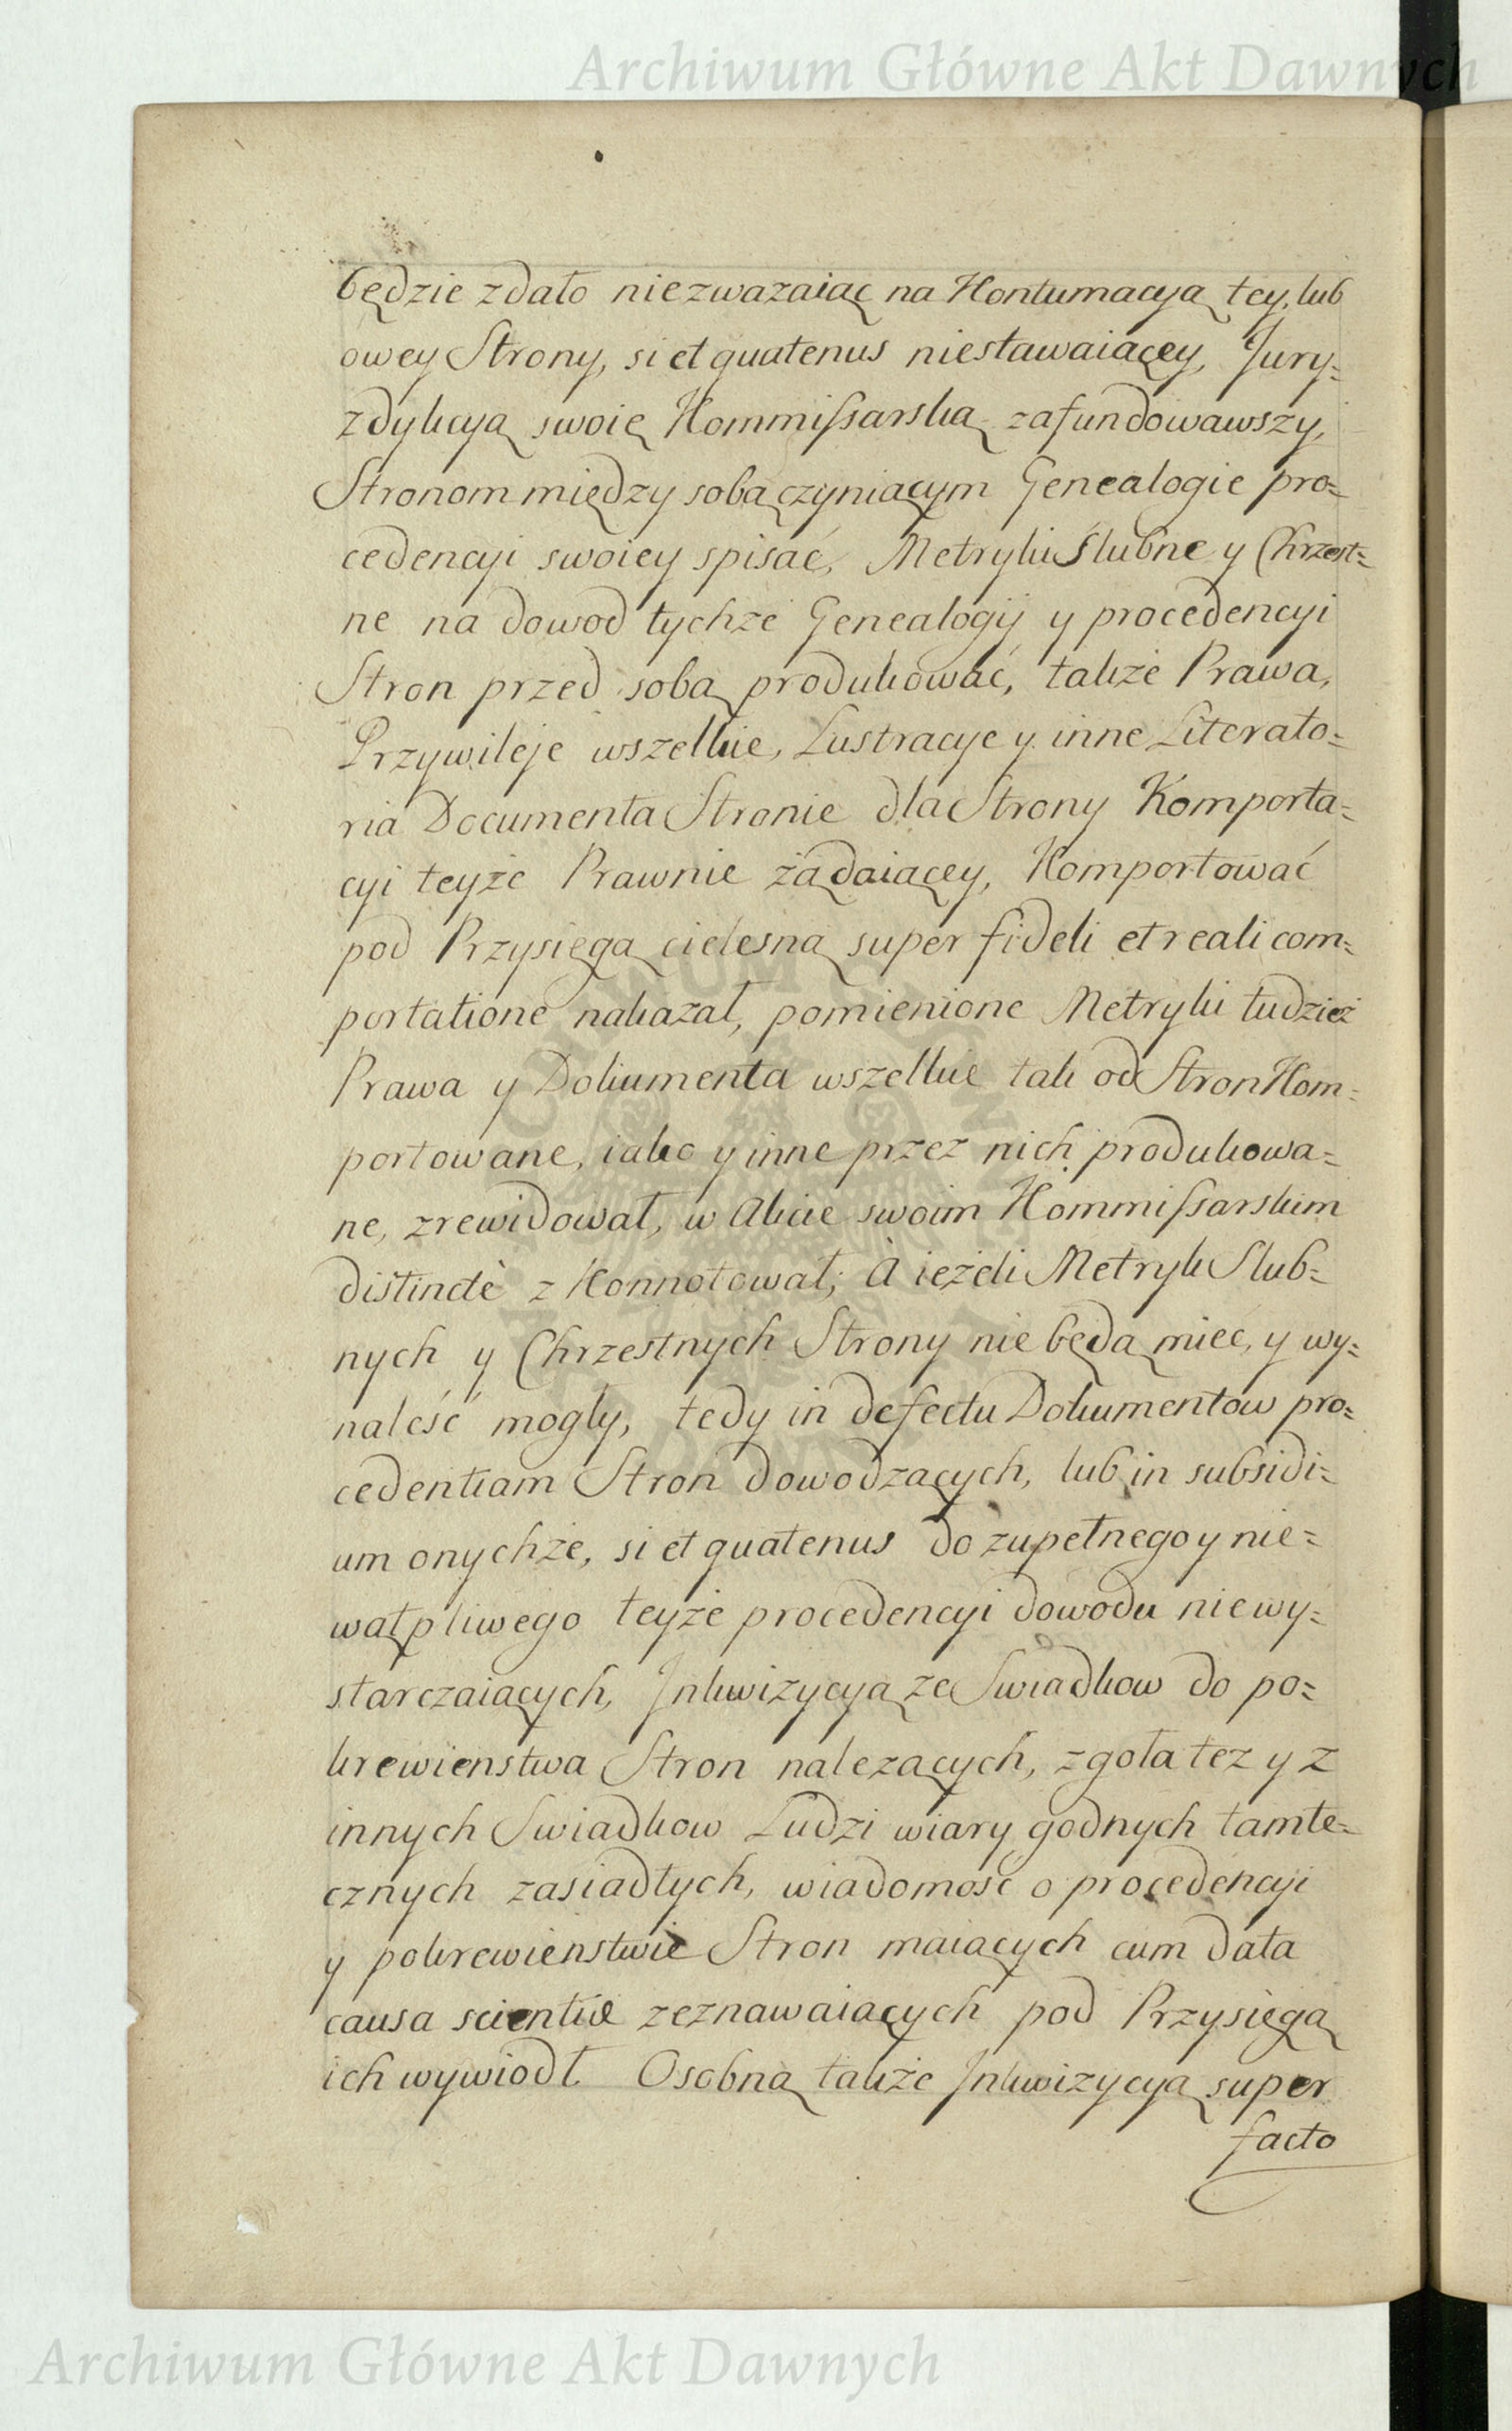 Archiwum Główne Akt Dawnych
będzie zdało niezwazaiąc na Kontumacyą tey, lub
owey Strony, si et quatenus niestawaiącey, Jury=
zdykcyą swoię Kommissarską zafundowawszy,
Stronom między sobą czyniącym Genealogie pro=
cedencyi swoiey spisać, Metryki Ślubne y Chrzest=
ne na dowod tychże Genealogij y procedencyi
Stron przed sobą produkować, także Prawa,
Przywileje wszelkie, Lustracye y inne Literato=
ria Documenta Stronie dla Strony Komporta=
cyi teyże Prawnie żądaiącey, Komportować
pod Przysięgą cielesną super fideli et reali com=
portatione nakazał, pomienione Metryki tudzież
Prawa y Dokumenta wszelkie tak od Stron Kom=
portowane, iako y inne przez nich produkowa=
ne, zrewidował, w Akcie swoim Kommissarskim
distinctè z Konnotował; A ieżeli Metryk Slub=
nych y Chrzestnych Strony nie będą mieć, y wy=
naleść mogły, tedy in defectu Dokumentow pro=
cedentiam Stron dowodzących, lub in subsidi=
um onychże, si et quatenus do zupełnego y nie=
wątpliwego teyże procedencyi dowodu niewy=
starczaiących, Inkwizycyą ze Swiadkow do po=
krewienstwa Stron nalezących, zgoła tez y z
innych Swiadkow Ludzi wiary godnych tamte=
cznych zasiadłych, wiadomość o procedencyi
y pokrewienstwie Stron maiących cum data
causa scientiæ zeznawaiących pod Przysięgą
ich wywiodł. Osobną także Inkwizycyą super
facto
Archiwum Główne Akt Dawnych